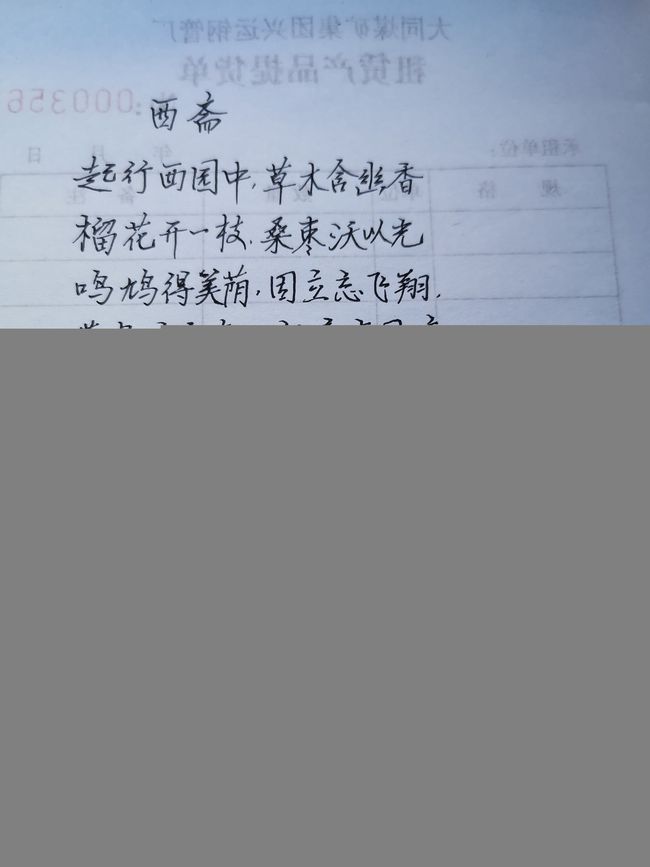 大同煤矿集团兴运钢管厂
租赁产品提货单
000356
西斋
承租单位: 年 月 日
规 格 单位 数量 备 注
起行西园中,草木含幽香
榴花开一枝.桑枣沃以光
鸣鸠得美荫,因立忘飞翔.